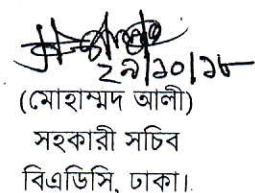 ২৯/১০/১৮
(মোহাম্মদ আলী)
সহকারী সচিব
বিএডিসি, ঢাকা।